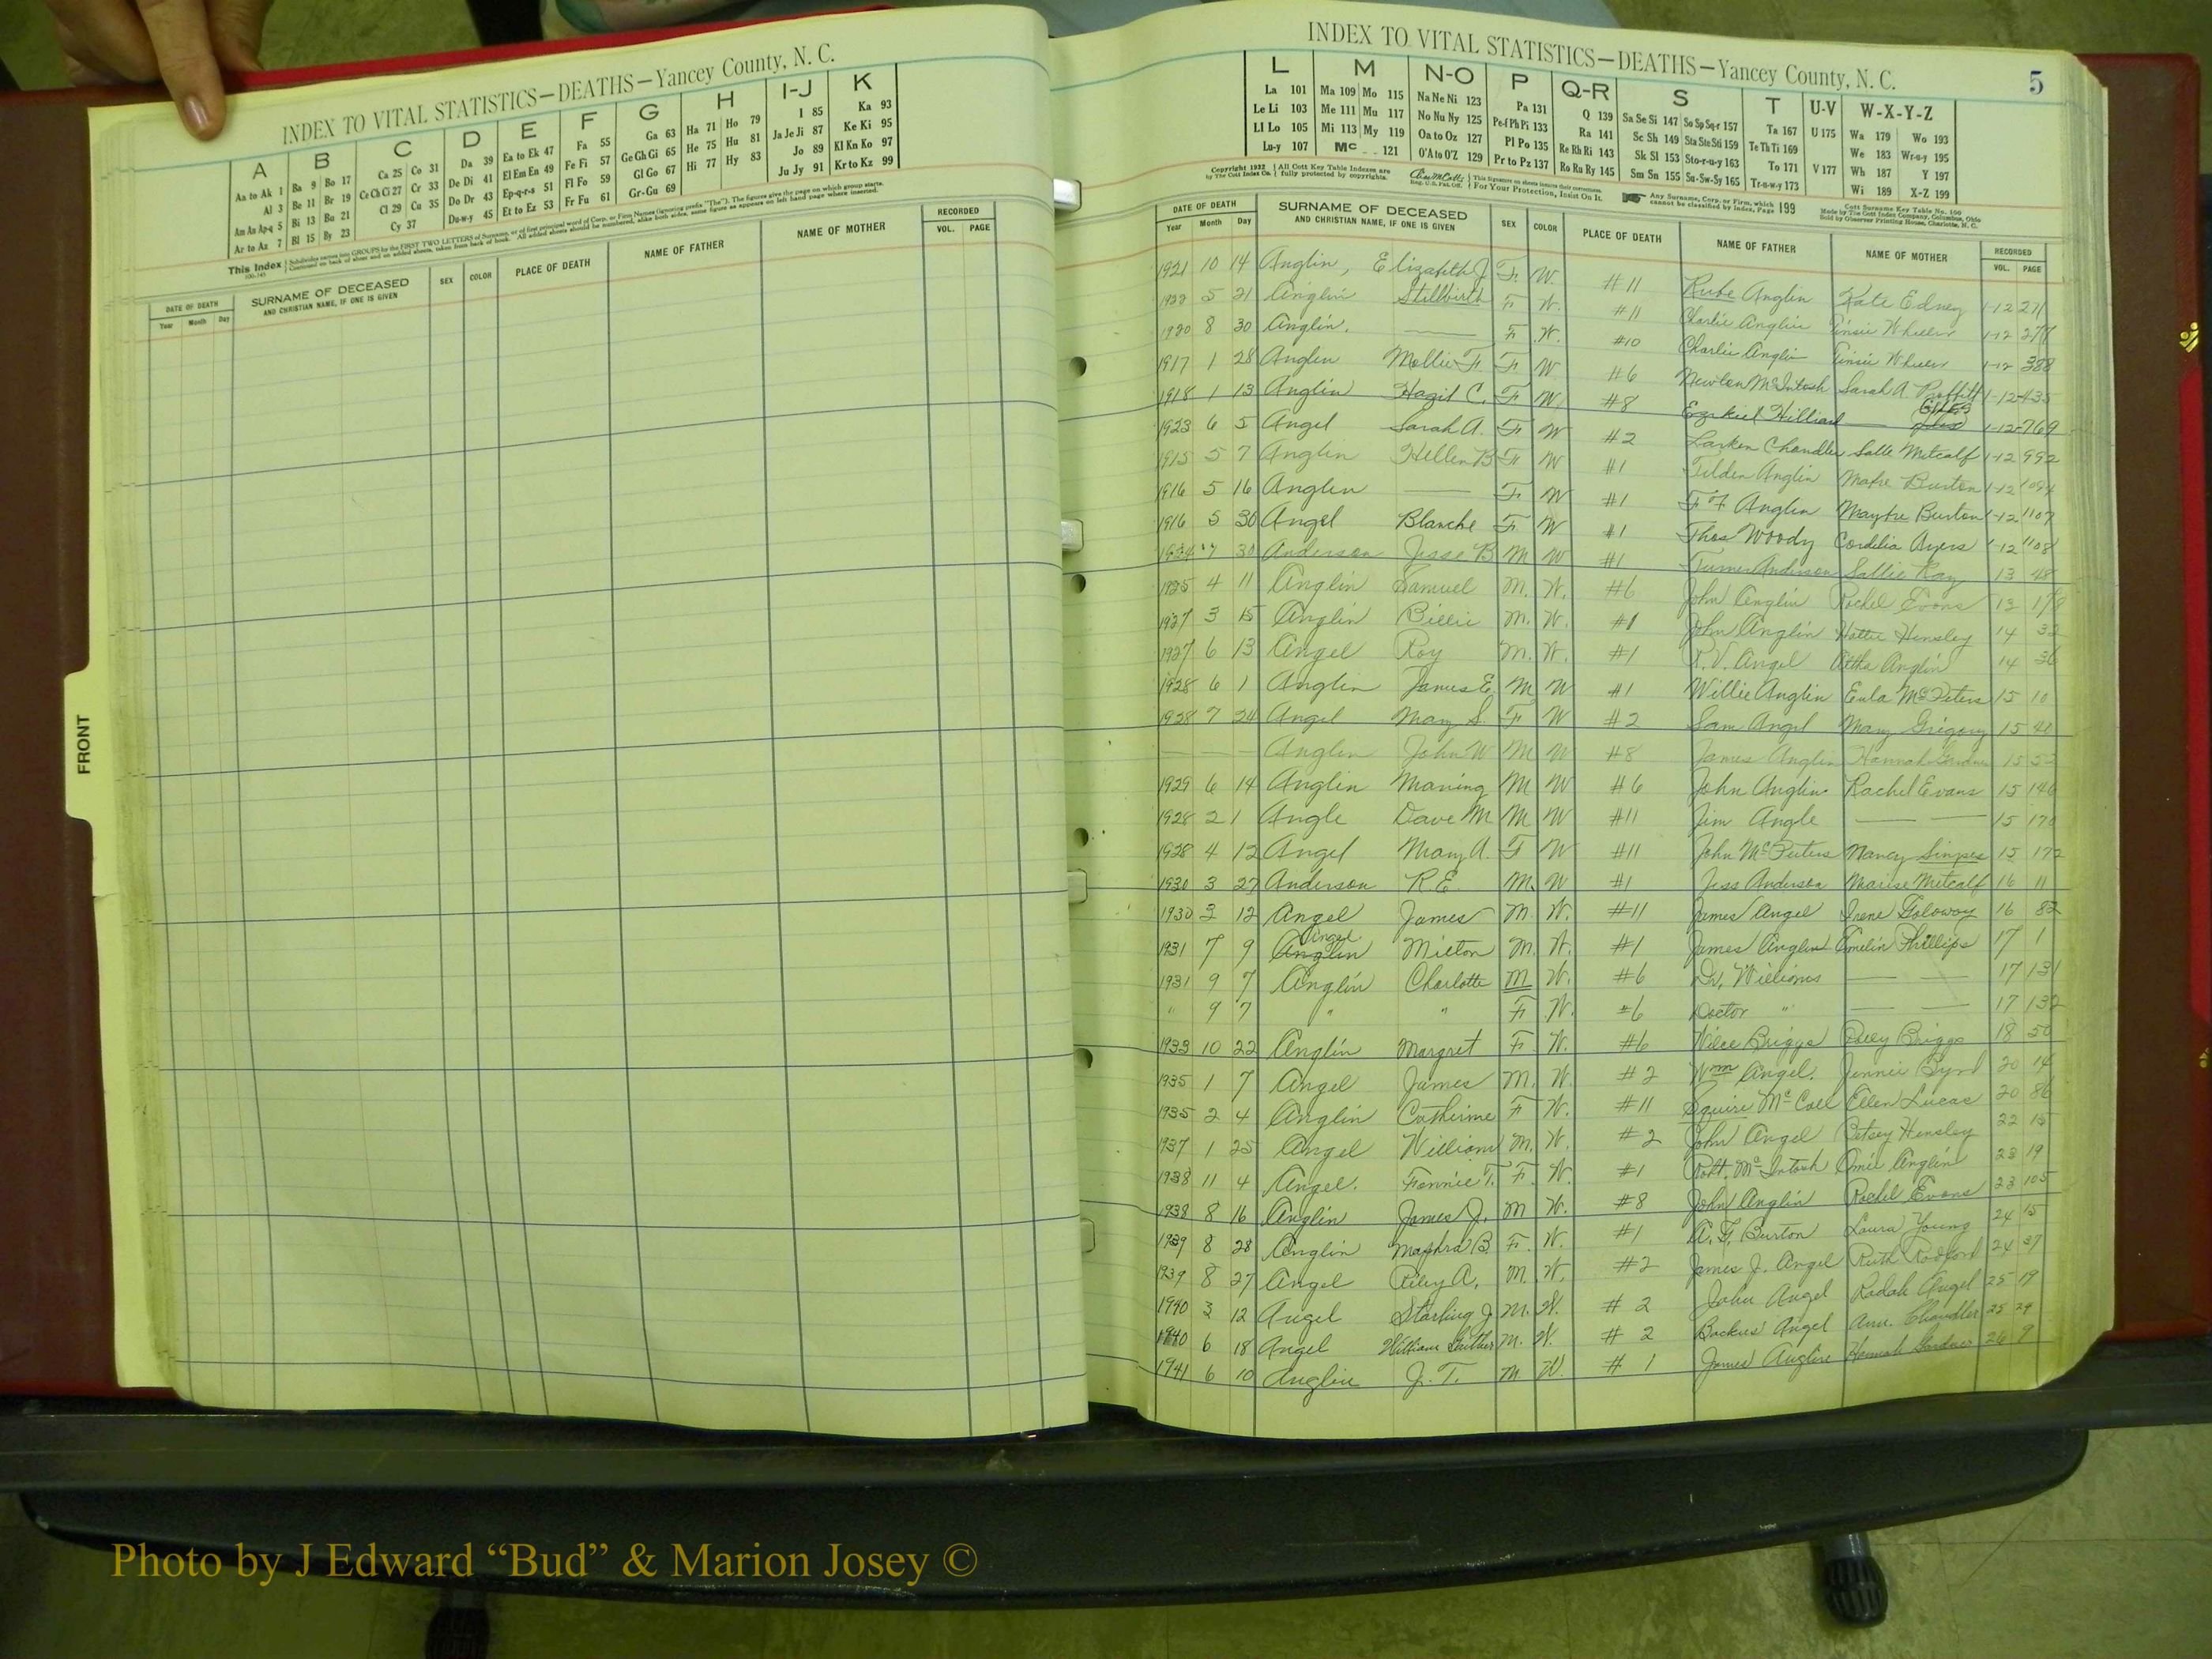 INDEX TO VITAL STATISTICS—DEATHS—Yancey County, N. C.
A B C D E F G H I-J K
Aa to Ak 1 Ba 9 Bo 17 Ca 25 Co 31 Da 39 Ea to Ek 47 Fa 55 Ga 63 Ha 71 Ho 79 I 85 Ka 93
Al 3 Be 11 Br 19 Ce Ch Ci 27 Cr 33 De Di 41 El Em En 49 Fe Fi 57 Ge Gh Gi 65 He 75 Hu 81 Ja Je Ji 87 Ke Ki 95
Am An Ap-q 5 Bi 13 Bu 21 Cl 29 Cu 35 Do Dr 43 Ep-q-r-s 51 Fl Fo 59 Gl Go 67 Hi 77 Hy 83 Jo 89 Kl Kn Ko 97
Ar to Az 7 Bl 15 By 23 Cy 37 Du-w-y 45 Et to Ez 53 Fr Fu 61 Gr-Gu 69 Ju Jy 91 Kr to Kz 99
This Index
DATE OF DEATH SURNAME OF DECEASED SEX COLOR PLACE OF DEATH NAME OF FATHER NAME OF MOTHER RECORDED
Year Month Day AND CHRISTIAN NAME, IF ONE IS GIVEN VOL. PAGE
FRONT
INDEX TO VITAL STATISTICS—DEATHS—Yancey County, N. C. 5
L M N-O P Q-R S T U-V W-X-Y-Z
La 101 Ma 109 Mo 115 Na Ne Ni 123 Pa 131 Q 139 Sa Se Si 147 So Sp Sq-r 157 Ta 167 U 175 Wa 179 Wo 193
Le Li 103 Me 111 Mu 117 No Nu Ny 125 Pe-f Ph Pi 133 Ra 141 Sc Sh 149 Sta Ste Sti 159 Te Th Ti 169 We 183 Wr-u-y 195
Ll Lo 105 Mi 113 My 119 Oa to Oz 127 Pl Po 135 Re Rh Ri 143 Sk Sl 153 Sto-r-u-y 163 To 171 V 177 Wh 187 Y 197
Lu-y 107 Mc 121 O'A to O'Z 129 Pr to Pz 137 Ro Ru Ry 145 Sm Sn 155 Su-Sw-Sy 165 Tr-u-w-y 173 Wi 189 X-Z 199
Copyright 1932 by The Cott Index Co. All Cott Key Table Indexes are fully protected by copyrights. For Your Protection, Insist On It. Any Surname, Corp. or Firm, which cannot be classified by index, Page 199
DATE OF DEATH SURNAME OF DECEASED SEX COLOR PLACE OF DEATH NAME OF FATHER NAME OF MOTHER RECORDED
Year Month Day AND CHRISTIAN NAME, IF ONE IS GIVEN VOL. PAGE
1921 10 14 Anglin, Elizabeth J. F. W. #11 Rube Anglin Kate Edney 1-12 271
5 21 Anglin Stillbirth F W. #11 Charlie Anglin Wheeler 1-12
1920 8 30 Anglin. F W. #10 Charlie Anglin Wheeler 1-12 388
1917 1 28 Anglin Mollie F. F W #6 Newton McIntosh Sarah A. Proffitt 1-12 435
1918 1 13 Anglin Hagil C. F W. #8 Ezekiel Hilliard Giles 1-12 769
1923 6 5 Angel Sarah A. F W #2 Larken Chandler Salle Metcalf 1-12 992
1915 5 7 Anglin Hellen B F W #1 Tilden Anglin Burton 1-12 1094
1916 5 16 Anglin F W #1 F F Anglin Burton 1-12 1107
1916 5 30 Angel Blanche F W #1 Thos Woody Cordelia Ayers 1-12 1108
1924 7 30 Anderson Jesse B M W #1 Turner Anderson Sallie Ray 13 48
1925 4 11 Anglin Samuel M. W. #6 John Anglin Rachel Evans 13 178
1927 3 15 Anglin Billie M. W. #1 John Anglin Hattie Hensley 14 32
1927 6 13 Angel Roy M. W. #1 Angel Anglin 14 36
1928 6 1 Anglin James E. M W #1 Willie Anglin Eula McPeters 15 10
1928 7 24 Angel Mary S. F W #2 Sam Angel Mary Gregory 15 40
Anglin John W M W #8 James Anglin Hannah 15 52
1929 6 14 Anglin Maning M W #6 John Anglin Rachel Evans 15 146
1928 2 1 Angle Dave M M W #11 Jim Angle 15 170
1928 4 12 Angel Mary A. F W #11 John McPeters Nancy Simpes 15 172
1930 3 27 Anderson R.E. M. W #1 Jess Anderson Marise Metcalf 16 11
1930 3 12 Angel James M. W. #11 James Angel Irene Galoway 16 82
Angel
1931 7 9 Anglin Milton M. W. #1 James Anglin Phillips 17 1
1931 9 7 Anglin Charlotte M W. #6 Dr. Williams 17 131
" 9 7 " " F W. #6 Doctor " 17 132
1933 10 22 Anglin Margret F W. #6 Briggs Briggs 18 50
1935 1 7 Angel James M. W. #2 Wm Angel. Jennie Byrd 20 14
1935 2 4 Anglin Catherine F W. #11 Squire McCall Ellen Lucas 20 86
1937 1 25 Angel William M. W. #2 John Angel Betsey Hensley 22 15
1938 11 4 Angel. Fannie T. F. W. #1 Robt. McIntosh Omie Anglin 23 19
1938 8 16 Anglin James J. M W. #8 John Anglin Rachel Evans 23 105
1939 8 28 Anglin Maphra B. F. W. #1 A. F. Burton Laura Young 24 15
1939 8 27 Angel Riley A. M. W. #2 James J. Angel Ruth Radford 24 37
1940 3 12 Angel Starling J M. W. # 2 John Angel Radah Angel 25 19
1940 6 18 Angel William M. W. # 2 Backus Angel Ann. Chandler 25 24
1941 6 10 Anglin J. T. M W. # 1 James Anglin Hannah Gardner 26 9
Photo by J Edward “Bud” & Marion Josey ©